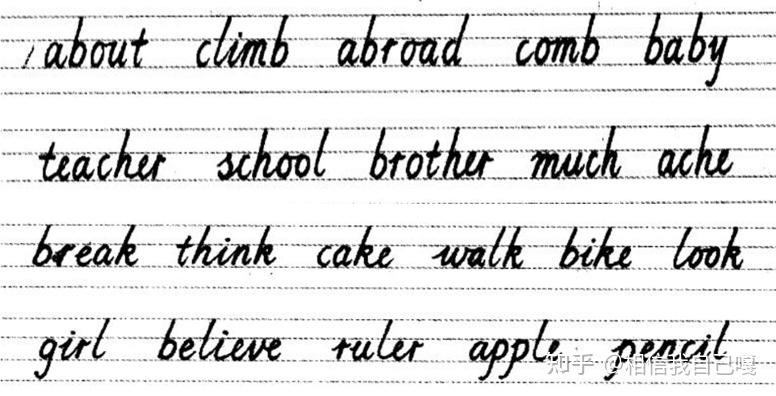 about climb abroad comb baby
teacher school brother much ache
break think cake walk bike look
girl believe ruler apple pencil
知乎 @相信我自己嘎